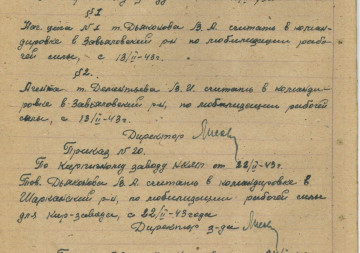 §1
Нач. цеха №1 т. Дьяконова В. А. считать в коман-
дировке в Завьяловский р-н по мобилизации рабо-
чей силы, с 13/II-43г.
§2.
Агента т. Дементьева В. И. считать в командиро-
вке в Завьяловский р-н, по мобилизации рабочей
силы, с 13/II-43г.
Директор
Приказ № 20.
По Кирпичному заводу НКМП от 22/II-43г.
Тов. Дьяконова В. А. считать в командировке в
Шарканский р-н, по мобилизации рабочей силы
для кир-завода, с 22/II-43 года
Директор з-да